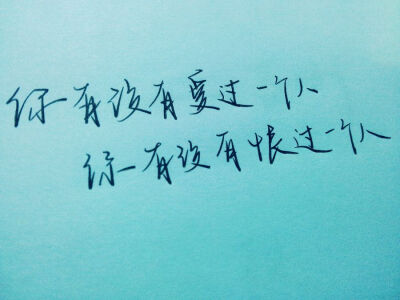 你有没有爱过一个人
你有没有恨过一个人